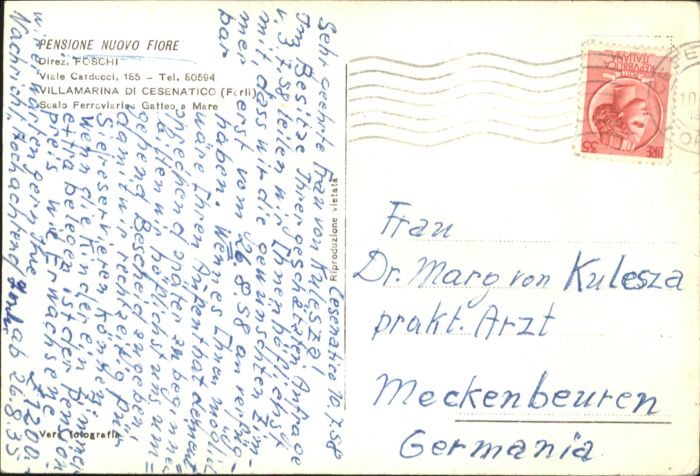 PENSIONE NUOVO FIORE
Direz. FOSCHI
Viale Carducci, 155 - Tel. 80594
VILLAMARINA DI CESENATICO (Forlì)
Scalo Ferroviario: Gatteo a Mare
Cesenatico 10.7.58
Sehr geehrte Frau von Kulesza!
Im Besitze Ihrer geschätzten Anfrage
v. 3.7.58 teilen wir Ihnen höflichst
mit, dass wir die gewünschten Zim-
mer erst vom 26.8.58 an verfüg-
bar haben. Wenn es Ihnen möglich
wäre Ihren Aufenthalt dement-
sprechend später zu beginnen
bitten wir höflichst uns um-
gehend Bescheid zu geben,
damit wir rechtzeitig für
Sie reservieren können.
Wenn die Kinder ein Zimmer
extra belegen ist der Pension
preis wie Erwachsene
wir erwarten gern Ihre
Nachricht. Hochachtend
L. 1200
ab 26.8.
Vera fotografia
Riproduzione vietata
REPUBBLICA
ITALIANA
LIRE 35
Frau
Dr. Marg von Kulesza
prakt. Arzt
Meckenbeuren
Germania